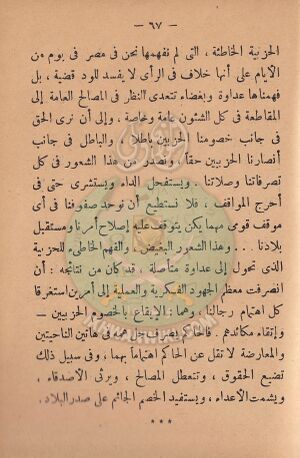 — ٦٧ —
الحزبية الخاطئة ، التى لم نفهمها نحن فى مصر فى يوم من
الأيام على أنها خلاف فى الرأى لا يفسد للود قضية ، بل
فهمناها عداوة وبغضاء تتعدى النظر فى المصالح العامة إلى
المقاطعة فى كل الشئون عامة وخاصة ، وإلى أن نرى الحق
فى جانب خصومنا الحزبيين باطلا ، والباطل فى جانب
أنصارنا الحزبيين حقا ، ونصدر عن هذا الشعور فى كل
تصرفاتنا وصلاتنا . ويستفحل الداء ويستشرى حتى فى
أحرج المواقف ، فلا نستطيع أن نوحد صفوفنا فى أى
موقف قومى مهما يكن يتوقف عليه إصلاح أمرنا ومستقبل
بلادنا ... وهذا الشعور البغيض ، والفهم الخاطىء للحزبية
الذى تحول إلى عداوة متأصلة ، قد كان من نتائجه : أن
انصرفت معظم الجهود الفكرية والعملية إلى أمرين استغرقا
كل اهتمام رجالنا ، وهما : الإيقاع بالخصوم الحزبيين —
وإتقاء مكائدهم . فالحاكم يصرف جل همه فى هاتين الناحيتين
والمعارضة لا تقل عن الحاكم اهتماماً بهما ، وفى سبيل ذلك
تضيع الحقوق ، وتتعطل المصالح ، ويرثى الأصدقاء ،
ويشمت الأعداء ، ويستفيد الخصم الجاثم على صدر البلاد .
***